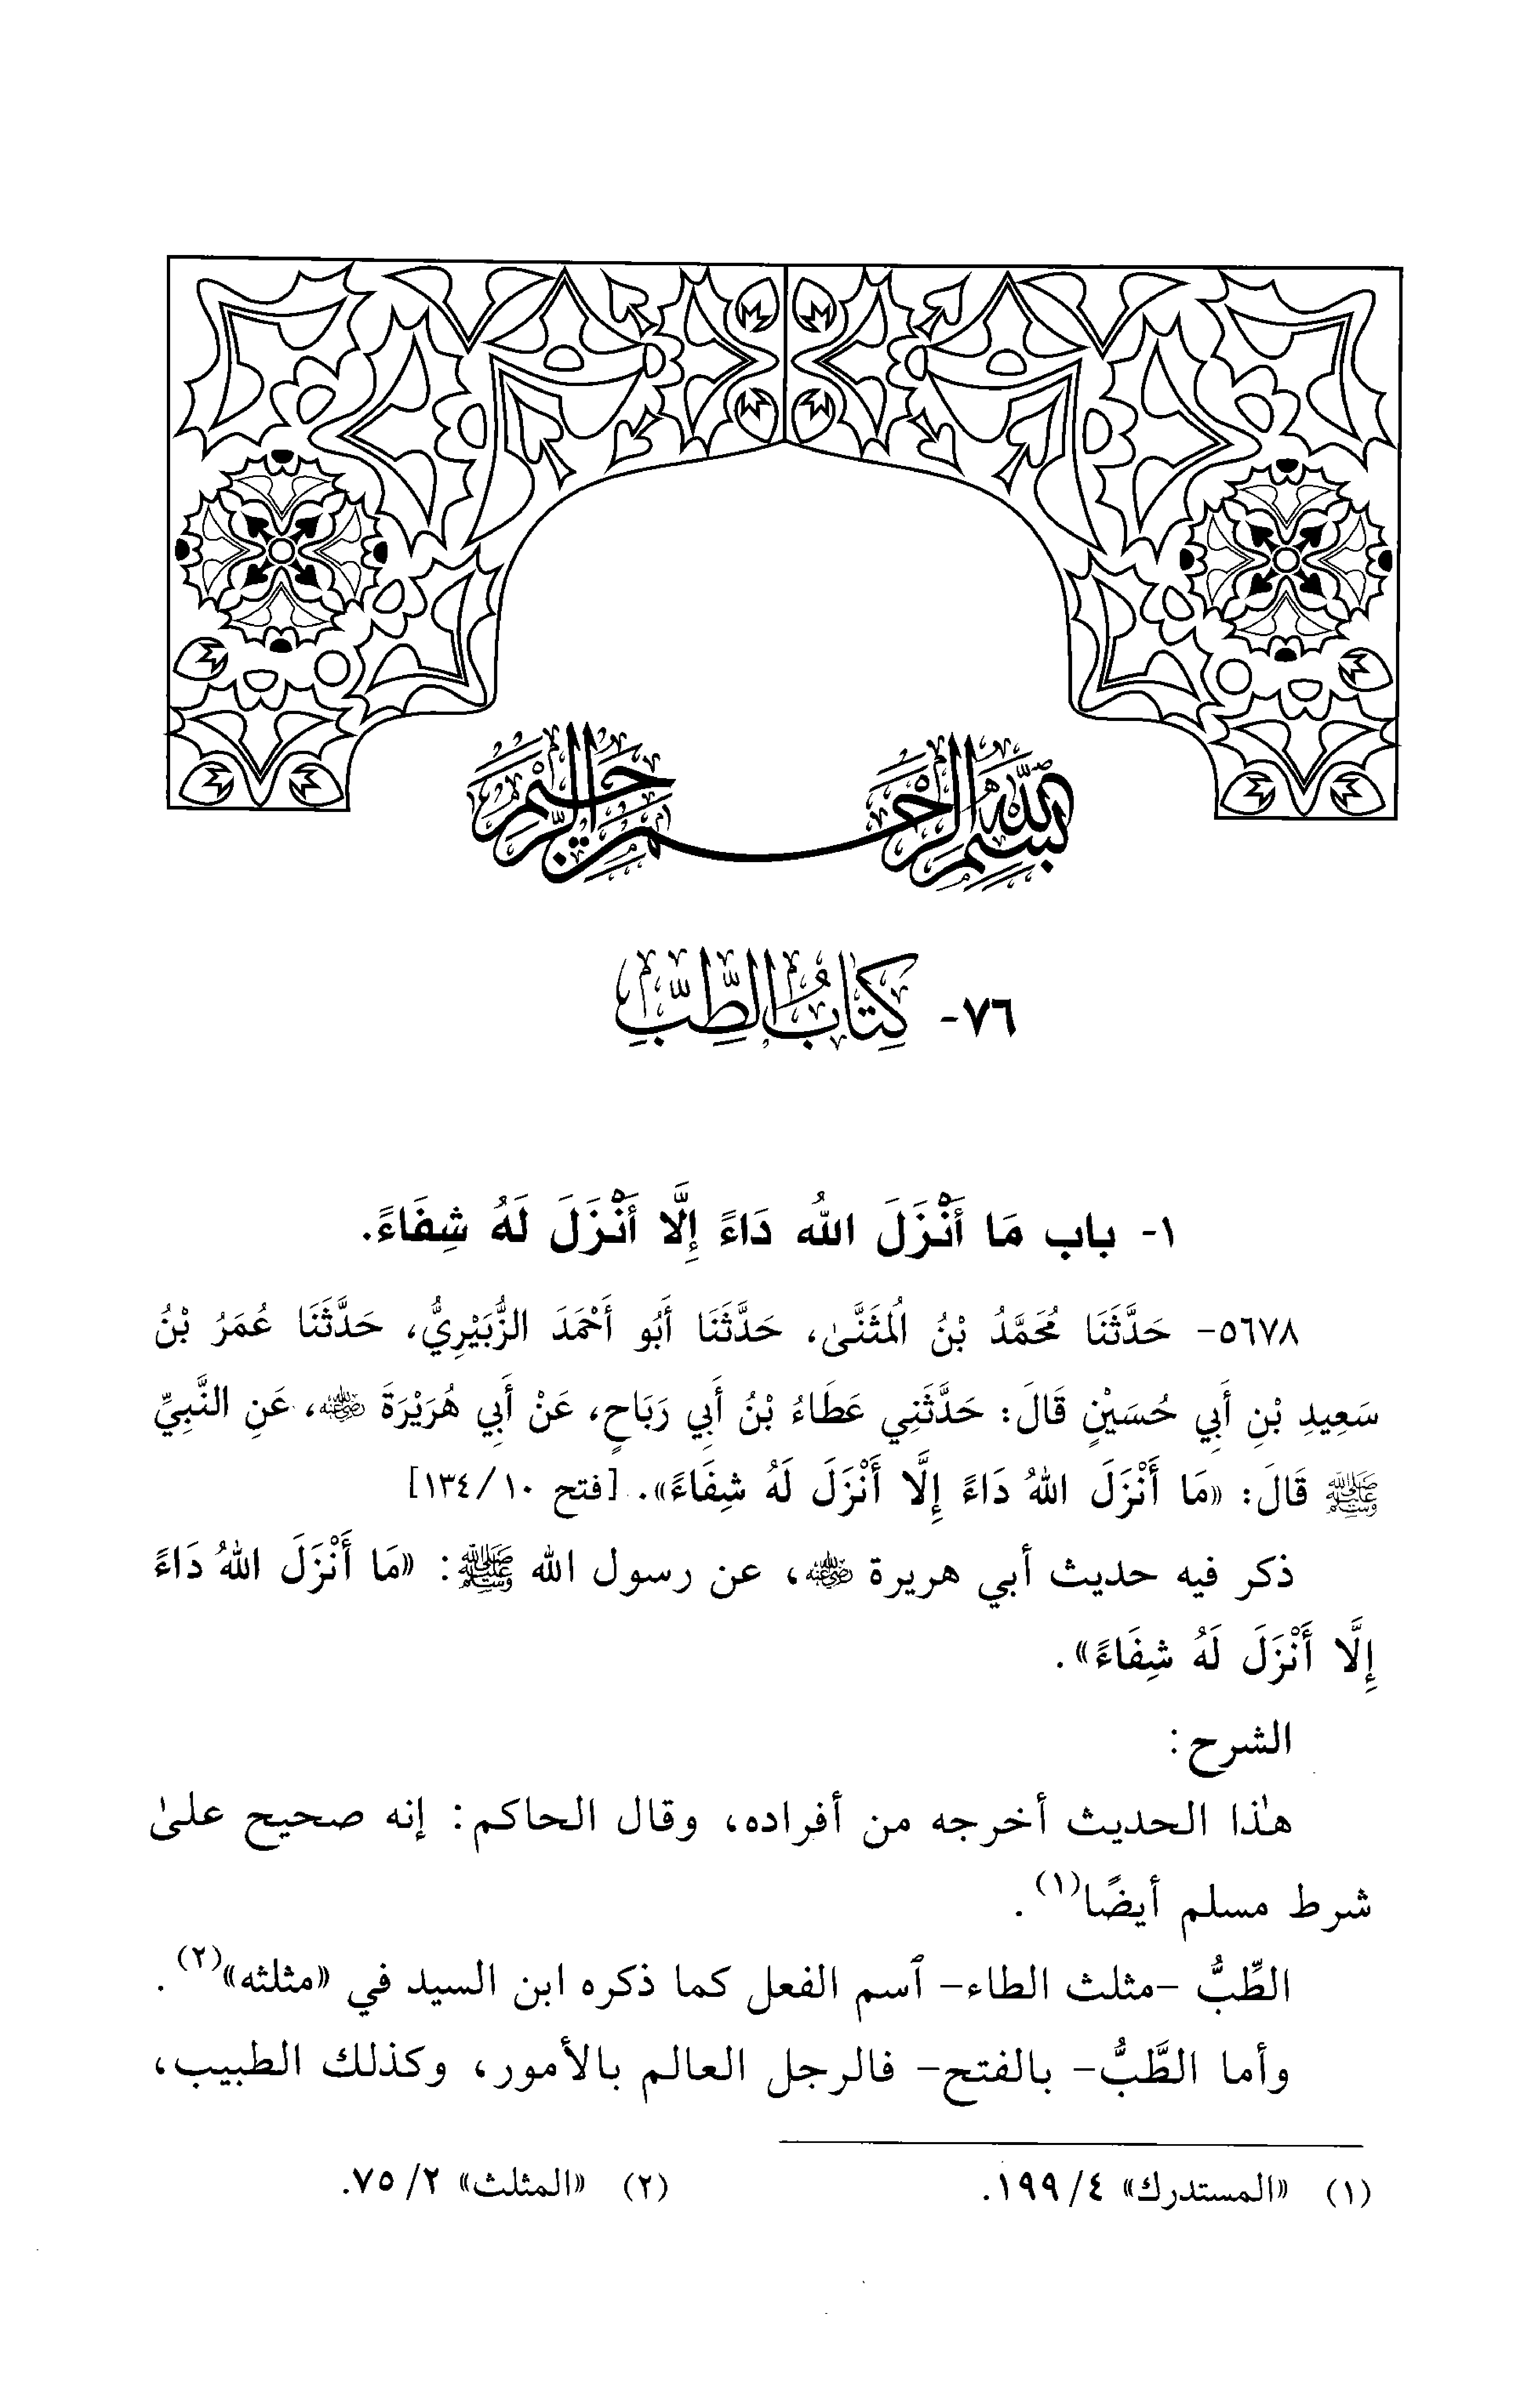 بسم الله الرحمن الرحيم
٧٦- كِتَابُ الطِّبِّ
١- باب مَا أَنْزَلَ اللّٰه دَاءً إِلَّا أَنْزَلَ لَهُ شِفَاءً.
٥٦٧٨- حَدَّثَنَا مُحَمَّدُ بْنُ المُثَنَّىٰ، حَدَّثَنَا أَبُو أَحْمَدَ الزُّبَيْرِيُّ، حَدَّثَنَا عُمَرُ بْنُ
سَعِيدِ بْنِ أَبِي حُسَيْنٍ قَالَ: حَدَّثَنِي عَطَاءُ بْنُ أَبِي رَبَاحٍ، عَنْ أَبِي هُرَيْرَةَ رضي الله عنه، عَنِ النَّبِيِّ
ﷺ قَالَ: «مَا أَنْزَلَ اللهُ دَاءً إِلَّا أَنْزَلَ لَهُ شِفَاءً». [فتح ١٠/ ١٣٤]
ذكر فيه حديث أبي هريرة رضي الله عنه، عن رسول الله ﷺ: «مَا أَنْزَلَ اللهُ دَاءً
إِلَّا أَنْزَلَ لَهُ شِفَاءً».
الشرح:
هٰذا الحديث أخرجه من أفراده، وقال الحاكم: إنه صحيح علىٰ
شرط مسلم أيضًا(١).
الطِّبُّ -مثلث الطاء- ٱسم الفعل كما ذكره ابن السيد في «مثلثه»(٢).
وأما الطَّبُّ- بالفتح- فالرجل العالم بالأمور، وكذلك الطبيب،
(١) «المستدرك» ٤/ ١٩٩.
(٢) «المثلث» ٢/ ٧٥.